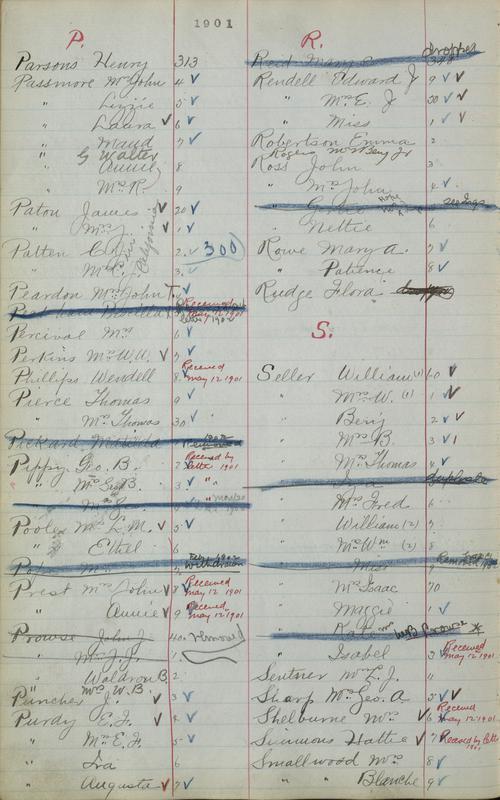 1901
P.
Parsons Henry 313
Passmore Mrs John 4 ✓
" Lizzie 5 ✓
" Laura ✓ 6 ✓
" Maud 7 ✓
" G Walter
" Annie 8
" Mrs R. 9
Paton James ✓ 20 ✓
" Mrs J. ✓ 1 ✓
Patten C 2 ✓ 300
California
" Mrs C. 3 ✓
Peardon Mrs John T
Received
May 12 1901
Percival Mrs 6 ✓
Perkins Mrs W.W. ✓ 7 ✓
Phillips Wendell 8 Received May 12 1901
Pierce Thomas 9 ✓
" Mrs Thomas 30 ✓
Pickard
Pippy Geo. B. 2 Received by letter 1901
" Mrs Geo B. 3 ✓ "
Pooley Mrs L.M. ✓ 5 ✓
" Ethel 6
Feby 1902
Withdrawn
Prest Mrs John ✓ 8 Received May 12 1901
" Annie ✓ 9 Received May 12 1901
Prowse John J. 40 Removed
" Mrs J.J. 1
" Waldron B. 2
" Mrs W. B.
Puncher J. ✓ 3 ✓
Purdy E.J. ✓ 4 ✓
" Mrs E.J. 5 ✓
" Ira 6
" Augusta ✓ 7 ✓
R.
Reid Mary dropped
Rendell Edward J 9 ✓ ✓
" Mrs E. J 50 ✓ ✓
" Miss 1 ✓ ✓
Robertson Emma 2
Rogers Mrs Benj Jr
Ross John 3
" Mrs John 4 ✓
" Gertie
" Nettie 6
Rowe Mary A. 7 ✓
" Patience 8 ✓
Rudge Flora
S.
Seller William (1) 60 ✓
" Mrs W. (1) 1 ✓
" Benj 2 ✓ ✓
" Mrs B. 3 ✓
" Mrs Thomas 4 ✓
" Duplicate
" Mrs Fred 6
" William (2) 7
" Mrs Wm (2) 8
" Miss 9
" Mrs Isaac 70
" Maggie 1 ✓
" Kate
" Isabel 3 Received May 12 1901
Sentner Mrs L. J. 4
Sharp Mrs Geo. A. 5 ✓ ✓
Shelburne Mrs ✓ 6 Received May 12 1901
Simmons Hattie ✓ 7
Smallwood Mrs 8 ✓
" " Blanche 9 ✓